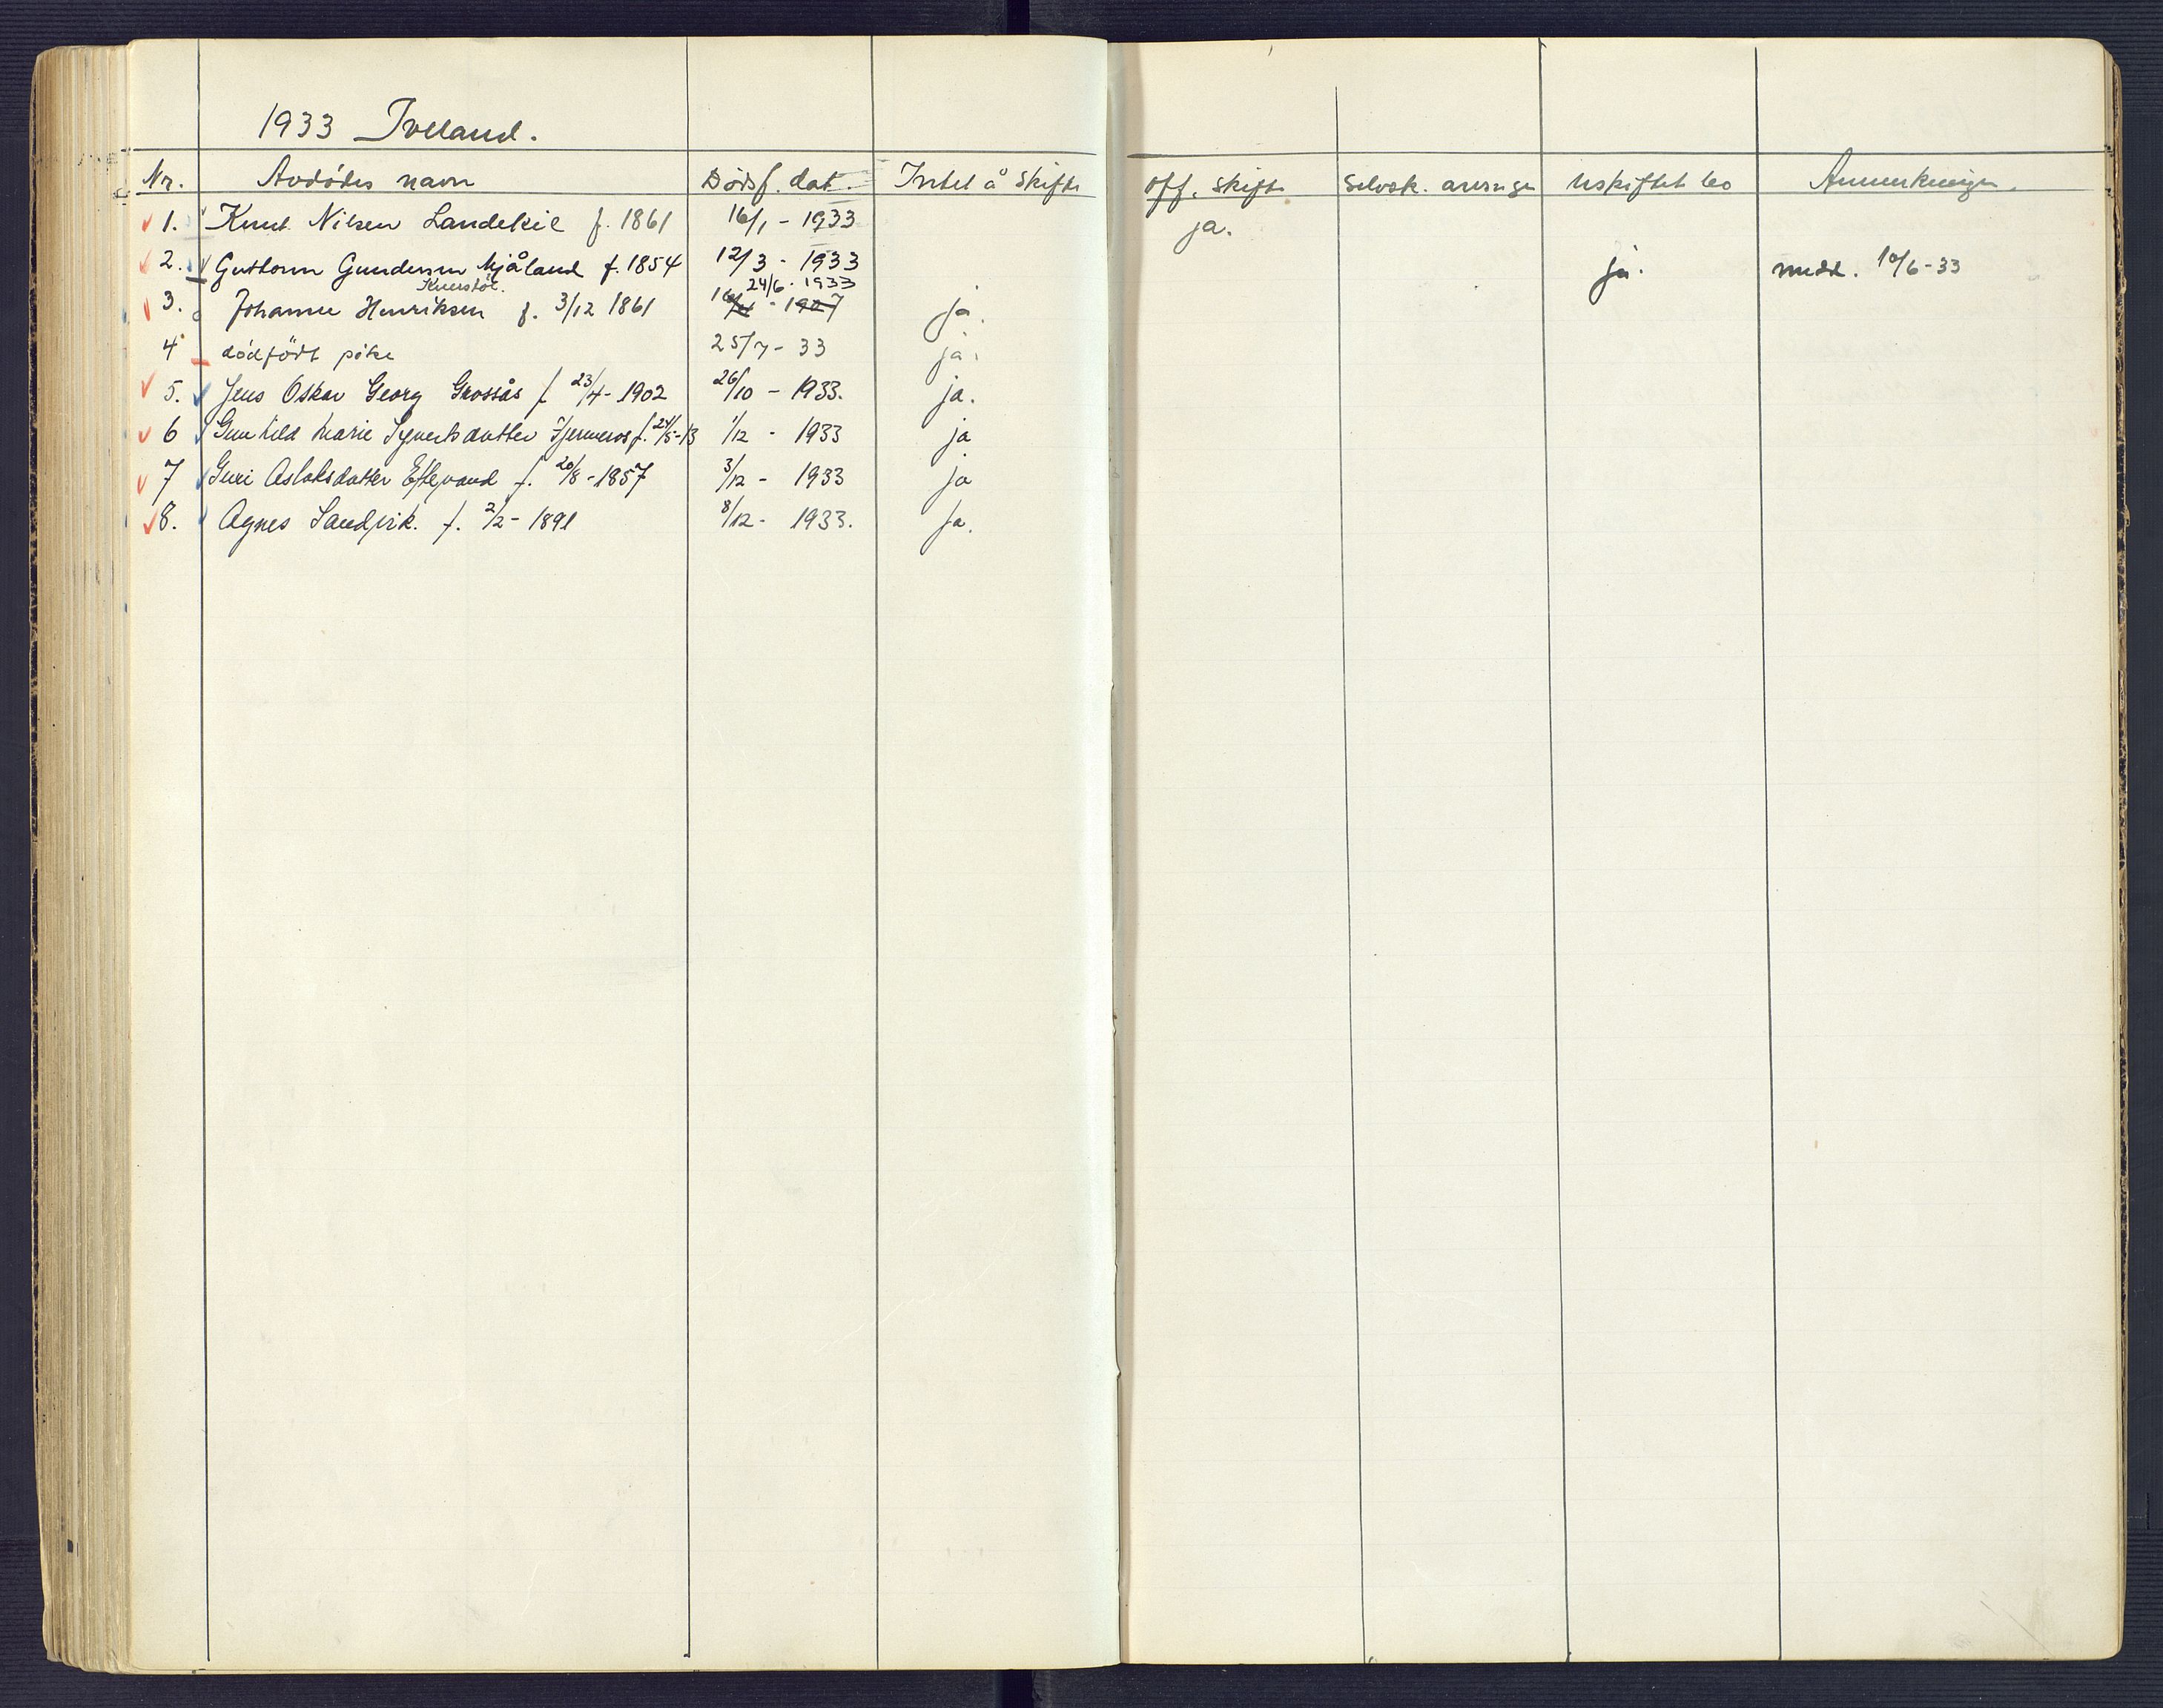 1933 Iveland.
Nr. Avdødes navn Dødsf. dat. Intet å skifte off. skifte selvsk. arvinger Uskiftet bo Anmerkninger.
1. Knut Nilsen Landekil f. 1861 16/1 - 1933 ja.
2. Guttorm Gundersen Mjåland f. 1854 12/3 - 1933 ja. medd. 10/6-33
24/6 - 1933
3. Johanne Henriksen f. 3/12 1861 ja.
4 dødfødt pike 25/7 - 33 ja.
5. Jens Oskar Georg Grossås f 23/4 - 1902 26/10 - 1933. ja.
6 Gunhild Marie Sigvertsdatter f. 24/5-13 1/12 - 1933 ja
7 Guri Aslaksdatter Eftevand f. 20/8 - 1857 3/12 - 1933 ja
8. Agnes Sandvik. f. 2/2 - 1891 8/12 - 1933. ja.